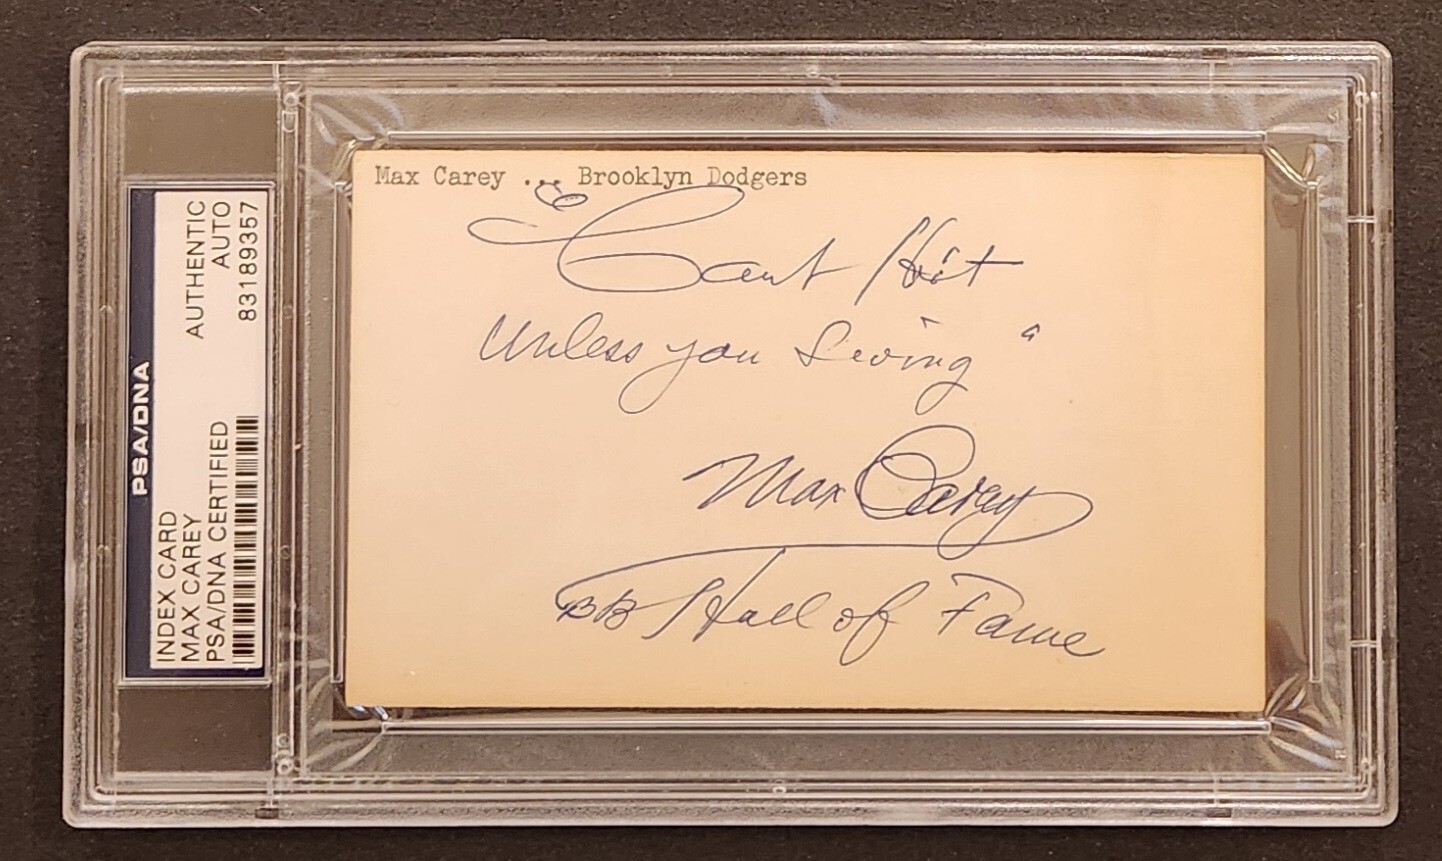 Max Carey ... Brooklyn Dodgers
"Cant Hit
Unless you Swing"
Max Carey
BB Hall of Fame
PSA/DNA
INDEX CARD
MAX CAREY
PSA/DNA CERTIFIED
AUTHENTIC
AUTO
83189357